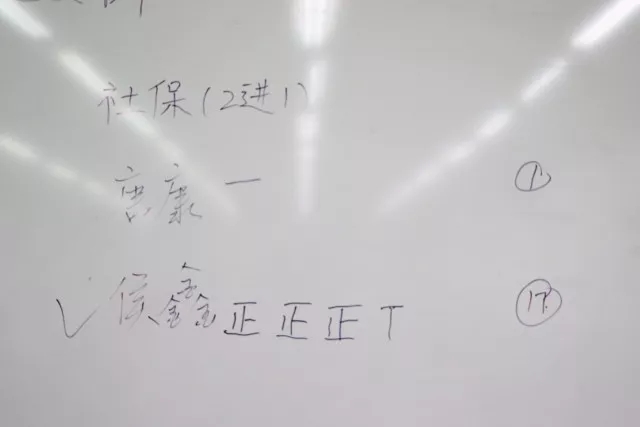 社保(2进1)
袁康 一 ①
✓侯鑫 正正正丅 ⑰